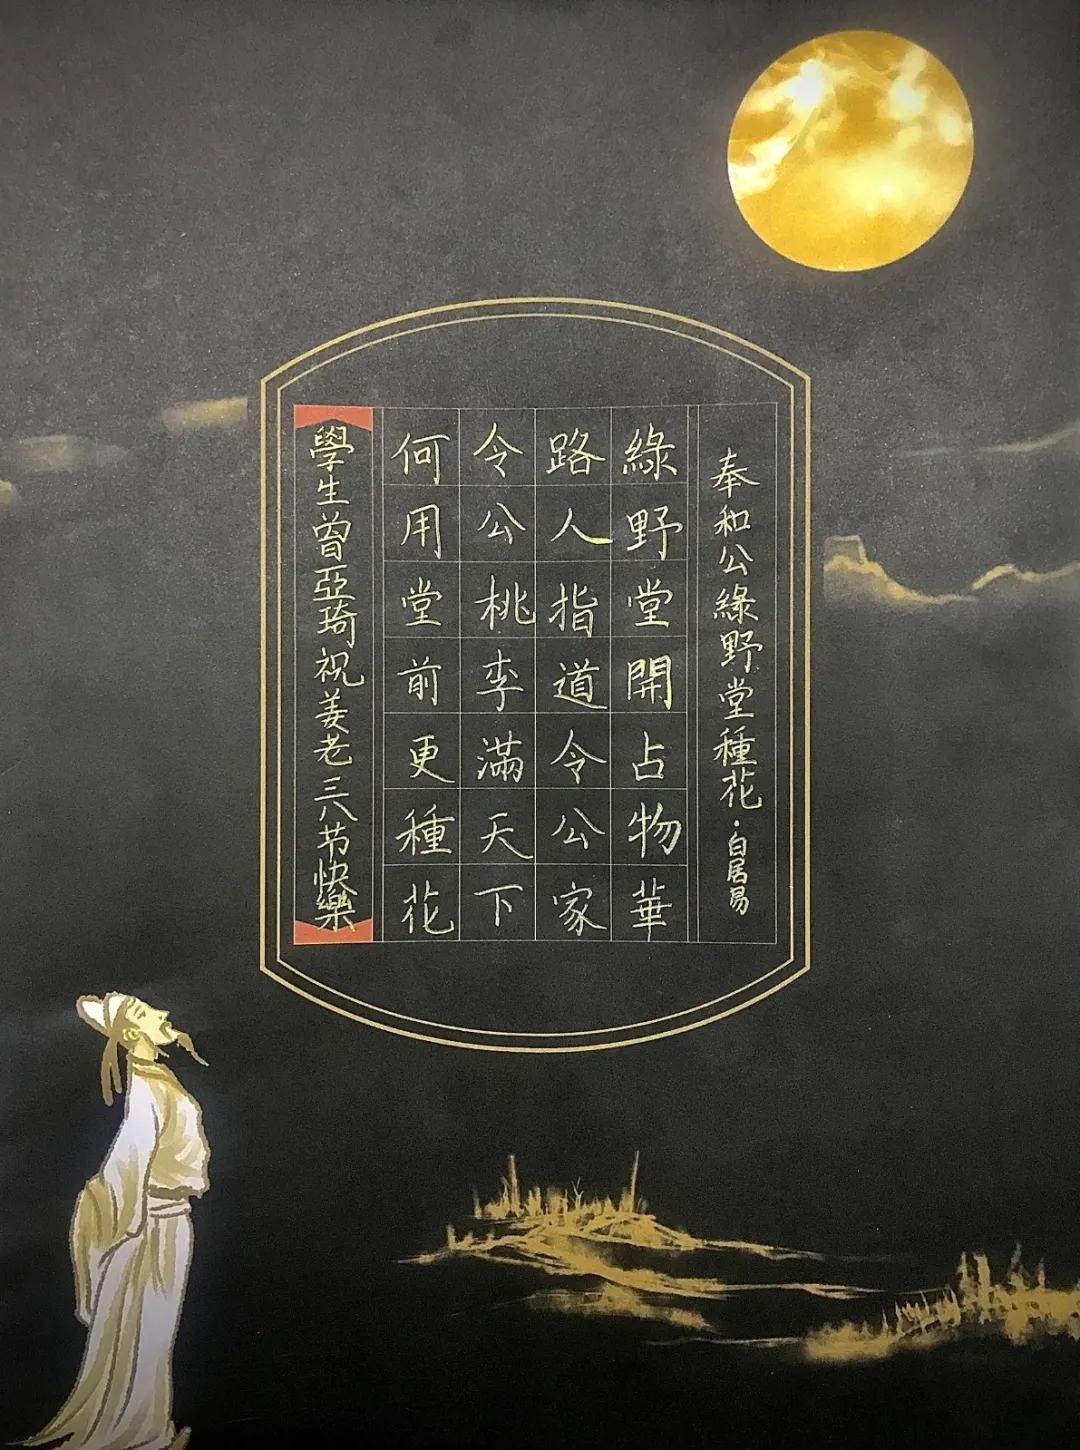 奉和公綠野堂種花·白居易
綠野堂開占物華
路人指道令公家
令公桃李滿天下
何用堂前更種花
學生曾亞琦祝姜老三八节快樂